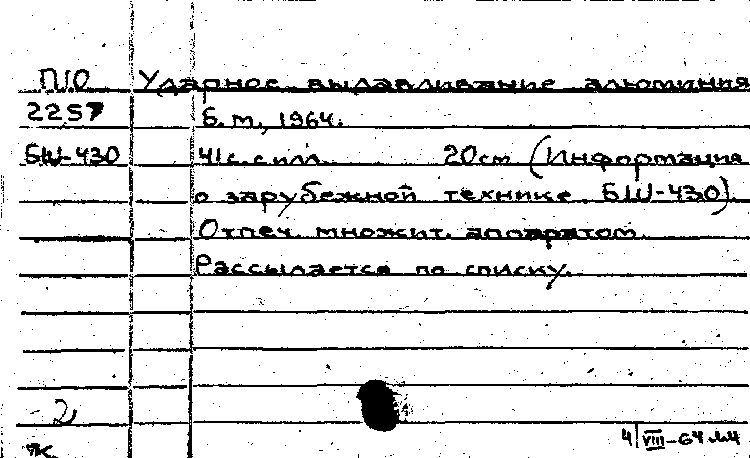 П/О Ударное выдавливание алюминия
2257 Б.м., 1964.
БШ-430 41с. с илл. 20см (Информация
о зарубежной технике БШ-430).
Отпеч. множит. аппаратом
Рассылается по списку.
2
4/VIII-64